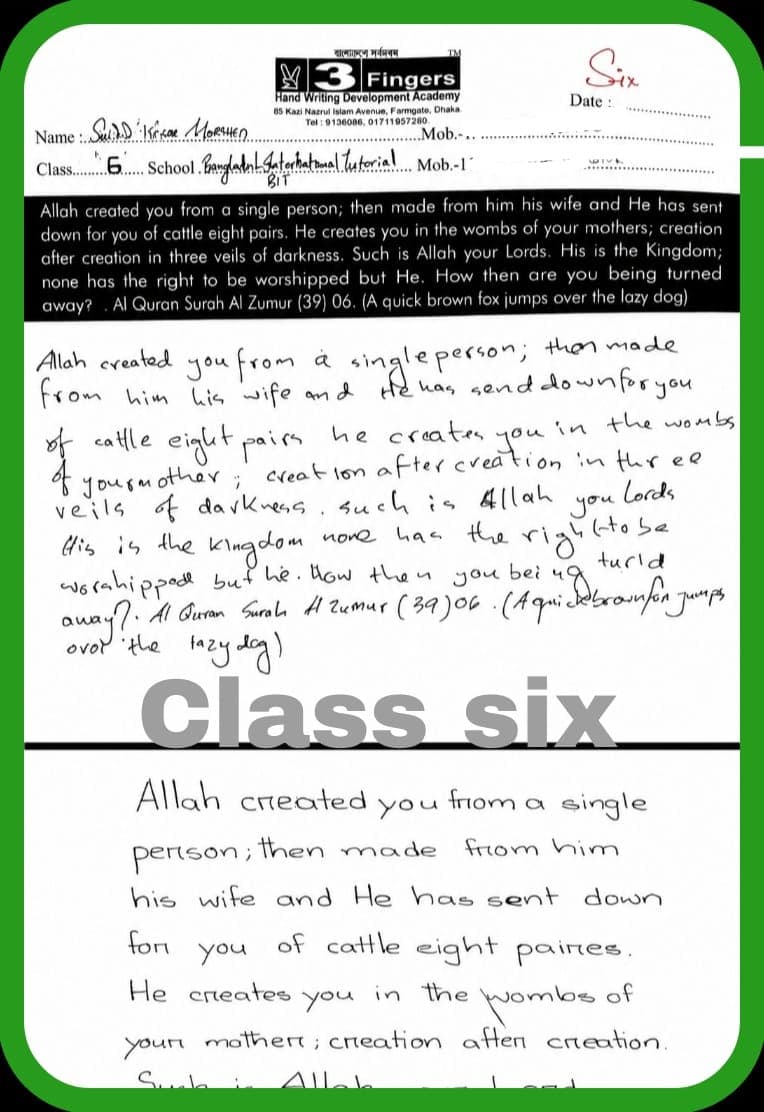 বাংলাদেশে সর্বপ্রথম
TM
3 Fingers
Hand Writing Development Academy
85 Kazi Nazrul Islam Avenue, Farmgate, Dhaka.
Tel : 9136086, 01711957280
Six
Date :
Name : MORSHED Mob.-
Class 6 School International Tutorial Mob.-1
BIT
Allah created you from a single person; then made from him his wife and He has sent
down for you of cattle eight pairs. He creates you in the wombs of your mothers; creation
after creation in three veils of darkness. Such is Allah your Lords. His is the Kingdom;
none has the right to be worshipped but He. How then are you being turned
away? . Al Quran Surah Al Zumur (39) 06. (A quick brown fox jumps over the lazy dog)
Allah created you from a single person; then made
from him his wife and He has send down for you
of cattle eight pairs he creates you in the wombs
of your mother; creation after creation in three
veils of darkness. such is Allah you Lords
His is the kingdom none has the right to be
worshipped but he. How then you being turld
away?. Al Quran Surah Al Zumur (39)06. (A quick brown fox jumps
over the lazy dog)
Class six
Allah created you from a single
person; then made from him
his wife and He has sent down
for you of cattle eight paires.
He creates you in the wombs of
your mother; creation after creation.
Such is Allah